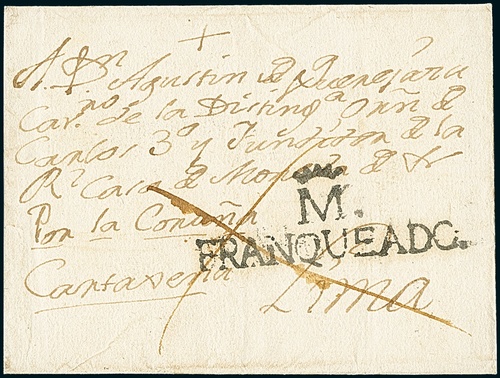 A Dn Agustin de
Cavno de la Distinga Orñ de
Carlos 3o y Fundidor de la
Rl Casa de Moneda de
M.
Por la Coruña
FRANQUEADO.
Cartaxena
Lima